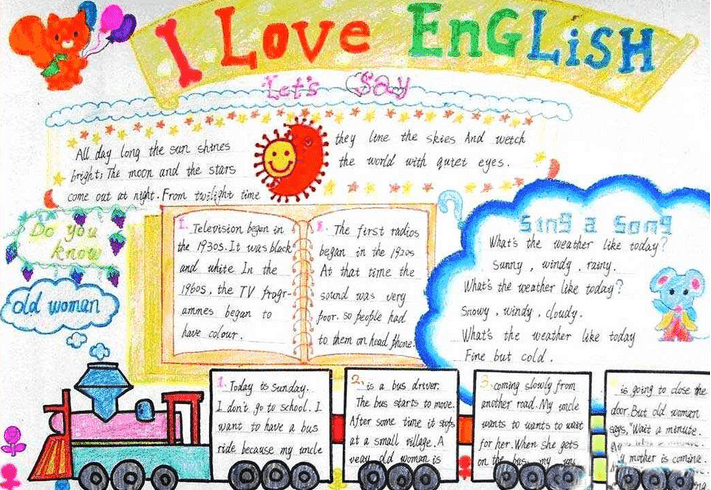 I Love EnGLiSH
Let's Say
All day long the sun shines
bright, The moon and the stars
come out at night. From twilight time
they line the skies And wetch
the world with quiet eyes.
Do you
know
old woman
1. Television began in
the 1930s. It was black
and white In the
1960s, the TV progr-
ammes began to
have colour.
The first radios
began in the 1920s
At that time the
sound was very
poor. so people had
to them on head phone
Sing a Song
What's the weather like today?
Sunny, windy, rainy.
What's the weather like today?
Snowy, windy, cloudy.
What's the weather like today
Fine but cold.
1. Today is Sunday.
I don't go to school. I
want to have a bus
ride because my uncle
2. is a bus driver.
The bus starts to move.
After some time it stops
at a small village. A
very old woman is
3. coming slowly from
another road. My uncle
wants to wants to wait
for her. When she gets
on the bus
is going to close the
door. But old woman
says, "Wait a minute.
mother is comine.